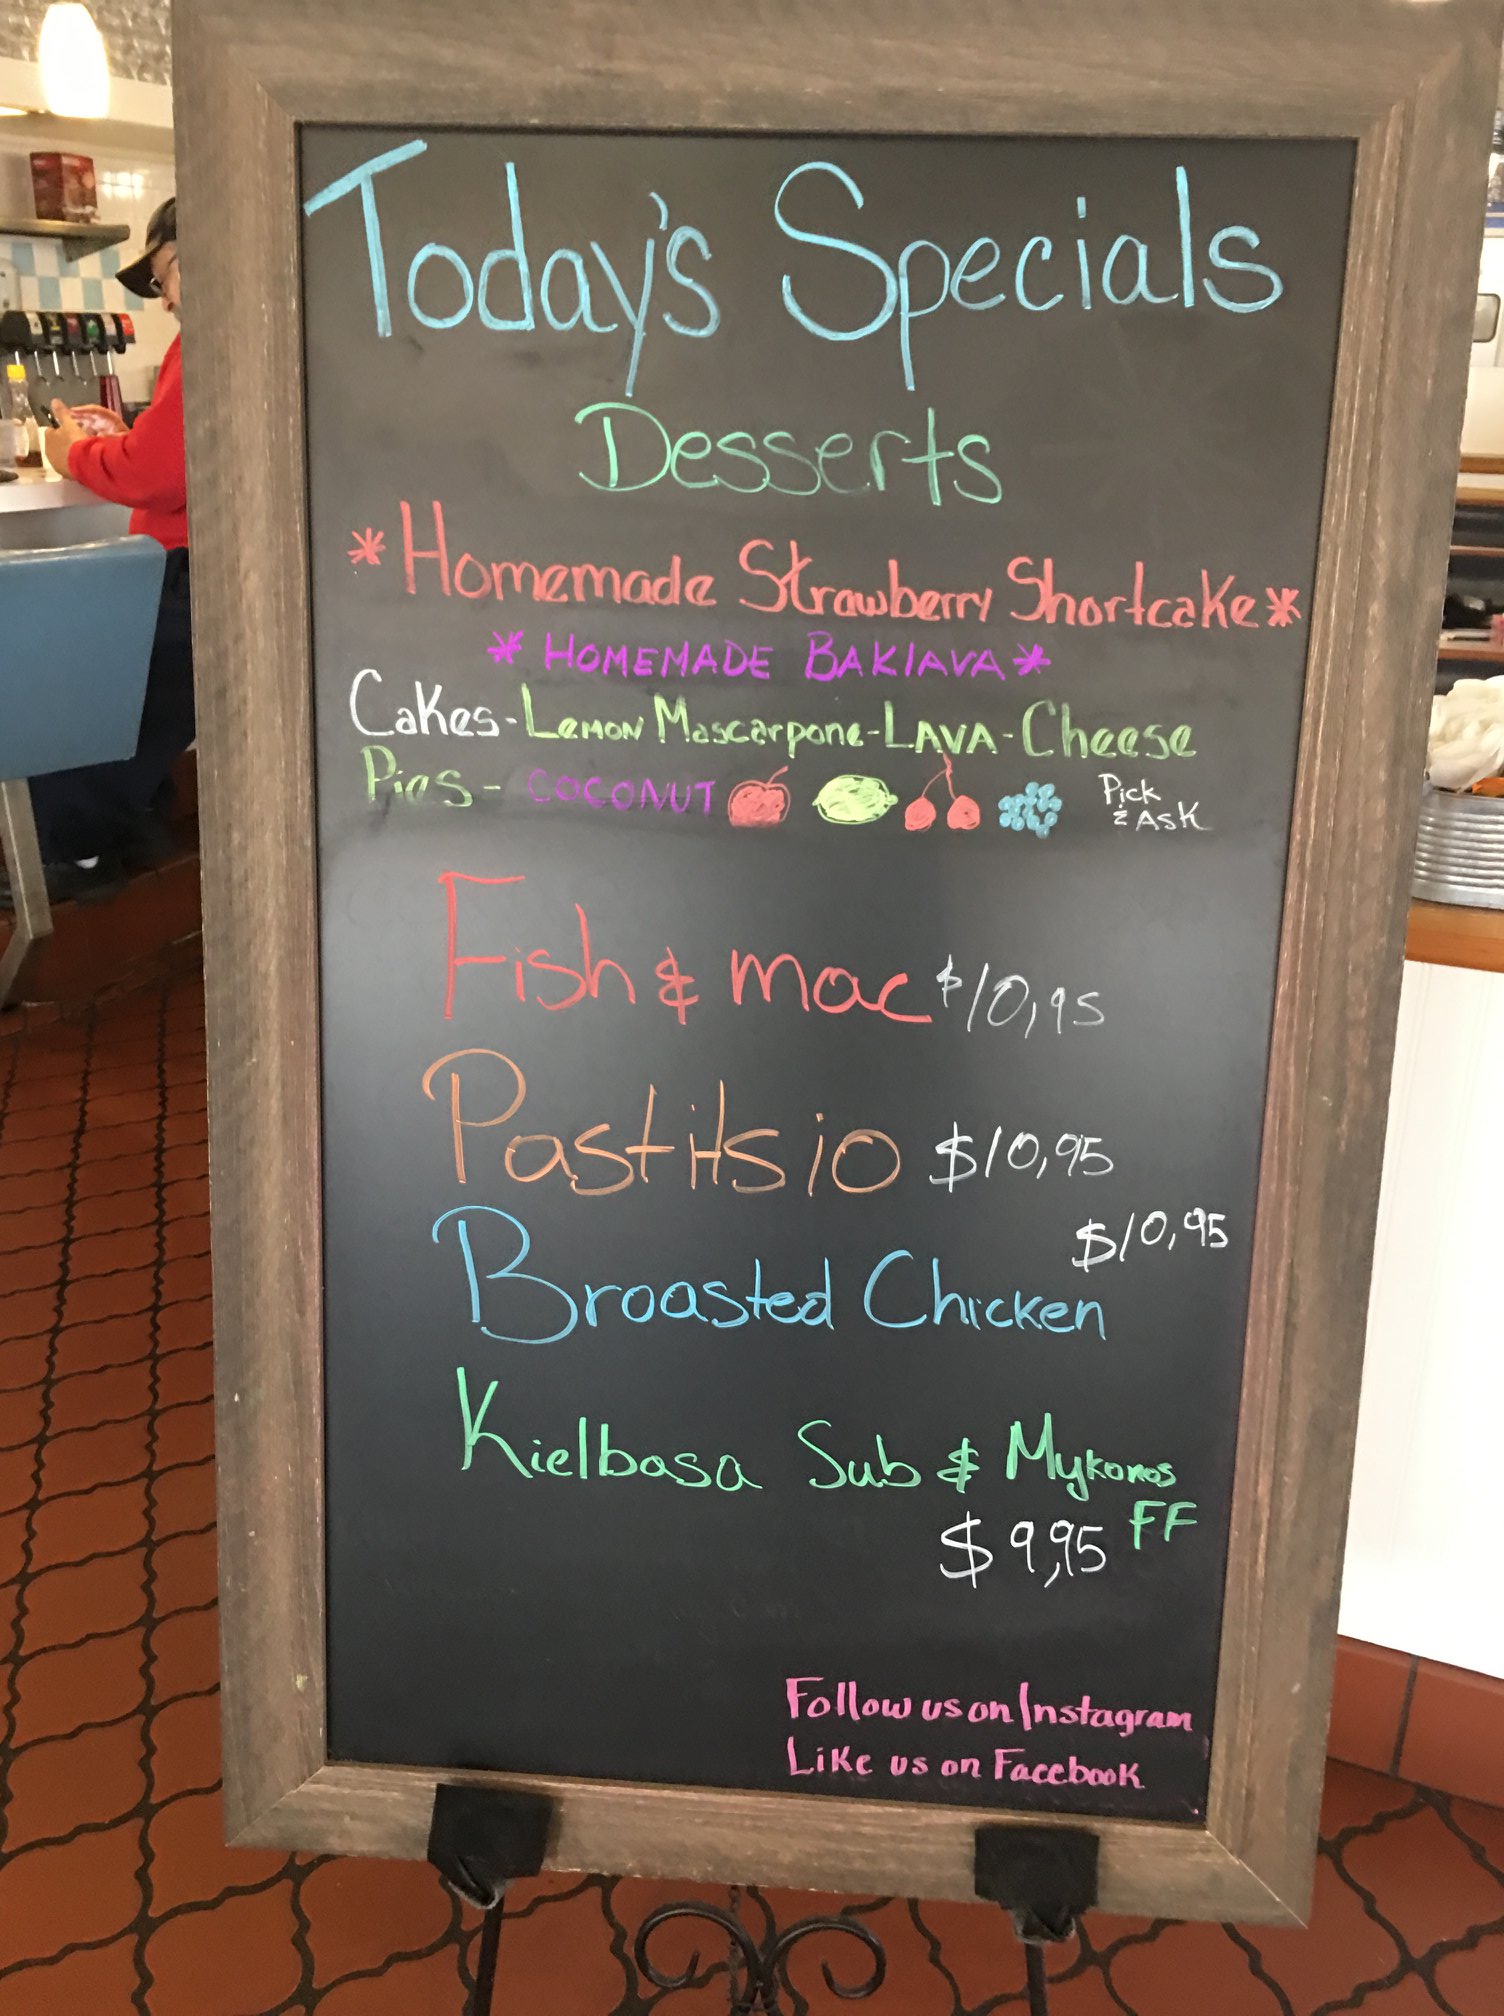 Today's Specials
Desserts
*Homemade Strawberry Shortcake*
*HOMEMADE BAKLAVA*
Cakes-Lemon Mascarpone-LAVA-Cheese
Pies- COCONUT Pick
& Ask
Fish & Mac $10,95
Pastitsio $10,95
$10,95
Broasted Chicken
Kielbasa Sub & Mykonos
FF
$9,95
Follow us on Instagram
Like us on Facebook